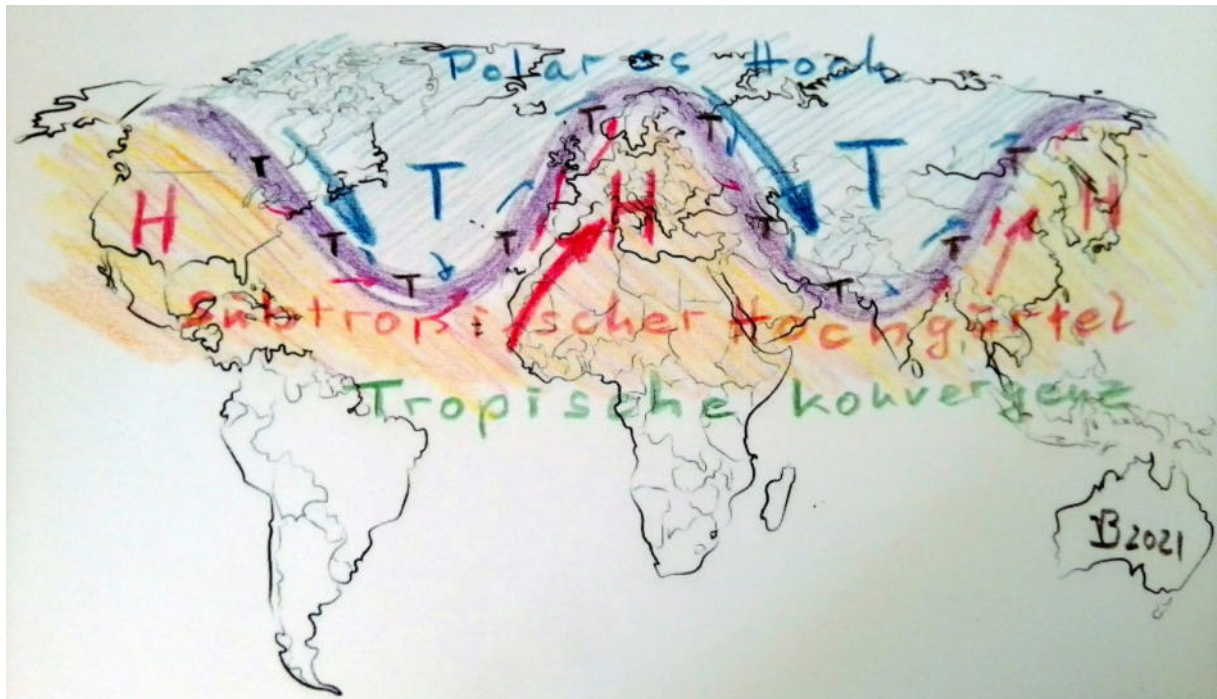 Polares Hoch
T T
T T T T
H H H
T T T T
T T
Subtropischer Hochgürtel
Tropische Konvergenz
B 2021